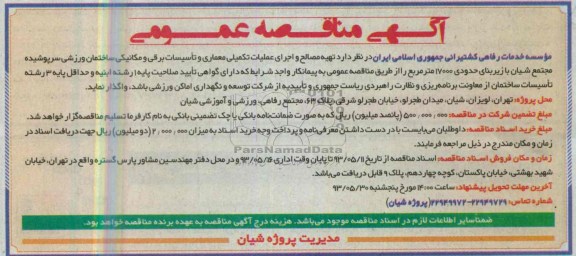 آگهی مناقصه عمومی
مؤسسه خدمات رفاهی کشتیرانی جمهوری اسلامی ایران در نظر دارد تهیه مصالح و اجرای عملیات تکمیلی معماری و تأسیسات برقی و مکانیکی ساختمان ورزشی سرپوشیده
مجتمع شیان با زیربنای حدودی ۱۷۰۰۰ مترمربع را از طریق مناقصه عمومی به پیمانکار واجد شرایط که دارای گواهی تأیید صلاحیت پایه ۱ رشته ابنیه و حداقل پایه ۳ رشته
تأسیسات ساختمان از معاونت برنامه‌ریزی و نظارت راهبردی ریاست جمهوری و تأییدیه از شرکت توسعه و نگهداری اماکن ورزشی باشد، واگذار نماید.
محل پروژه: تهران، لویزان، شیان، میدان طجرلو، خیابان طجرلو شرقی، پلاک ۶۴، مجتمع رفاهی، ورزشی و آموزشی شیان
مبلغ تضمین شرکت در مناقصه: ۵۰۰,۰۰۰,۰۰۰ (پانصد میلیون) ریال که به صورت ضمانت‌نامه بانکی یا چک تضمینی بانکی به نام کارفرما تسلیم مناقصه‌گزار خواهد شد.
مبلغ خرید اسناد مناقصه: داوطلبان می‌بایست با در دست داشتن معرفی‌نامه و پرداخت وجه خرید اسناد به میزان ۲,۰۰۰,۰۰۰ (دو میلیون) ریال جهت دریافت اسناد در
زمان و مکان مندرج در ذیل مراجعه فرمایند.
زمان و مکان فروش اسناد مناقصه: اسناد مناقصه از تاریخ ۹۳/۰۵/۱۱ تا پایان وقت اداری ۹۳/۰۵/۱۶ و در محل دفتر مهندسین مشاور پارس گستره واقع در تهران، خیابان
شهید بهشتی، خیابان پاکستان، کوچه چهاردهم، پلاک ۹ قابل دریافت می‌باشد.
آخرین مهلت تحویل پیشنهاد: ساعت ۱۴:۰۰ مورخ پنجشنبه ۹۳/۰۵/۳۰
شماره تماس: ۲۲۹۴۹۷۲۹-۲۲۹۴۹۹۷۲ (پروژه شیان)
ضمناً سایر اطلاعات لازم در اسناد مناقصه موجود می‌باشد. هزینه درج آگهی مناقصه به عهده برنده مناقصه خواهد بود.
مدیریت پروژه شیان
ParsNamadData